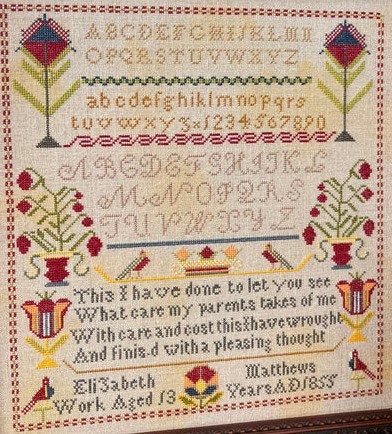 ABCDEFGHIJKLMN
OPQRSTUVWXYZ
abcdefghiklmnopqrs
tuvwxyz 1234567890
ABCDEFGHIJKL
MNOPQRS
TUVWXYZ
This I have done to let you see
What care my parents takes of me
With care and cost this I have wrought
And finis.d with a pleasing thought
Eli3abeth Matthews
Work Aged 13 Years AD 1855